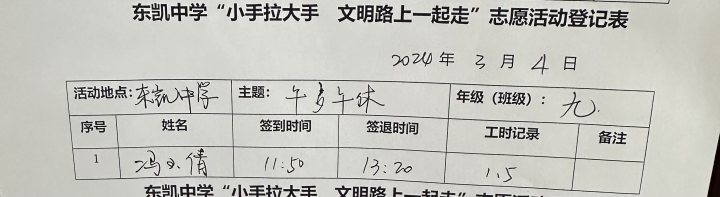 东凯中学“小手拉大手 文明路上一起走”志愿活动登记表
2024年3月4日
活动地点：东凯中学 主题：午间午休 年级（班级）：九.
序号 姓名 签到时间 签退时间 工时记录 备注
1 冯 倩 11:50 13:20 1.5
东凯中学“小手拉大手 文明路上一起走”志愿活动登记表